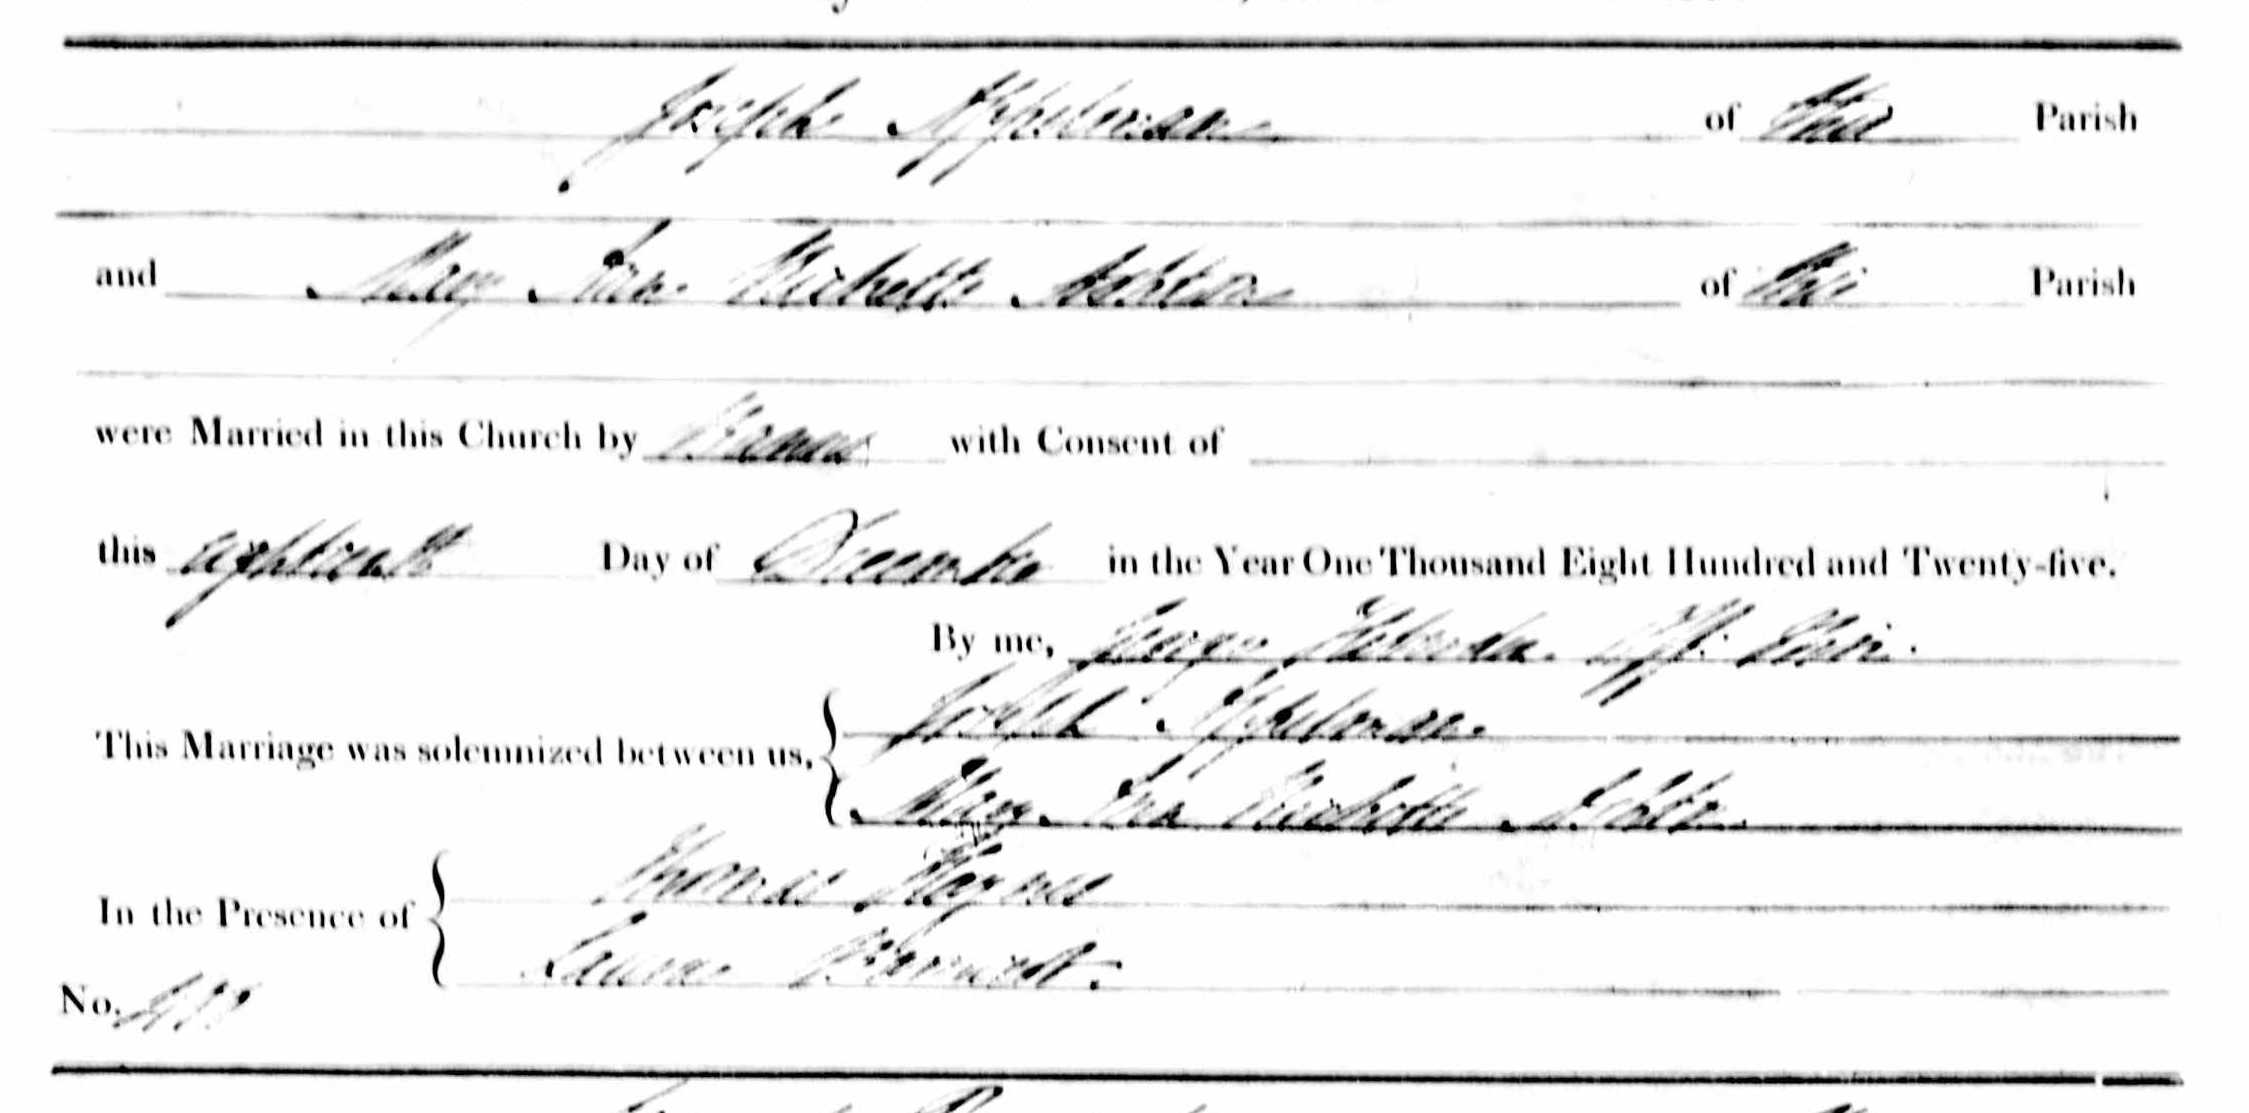 Joseph Appleman of this Parish
and Mary Jane Ashton of this Parish
were Married in this Church by Banns with Consent of
this eighteenth Day of December in the Year One Thousand Eight Hundred and Twenty-five.
By me, George
This Marriage was solemnized between us, { Joseph Appleman
Mary Jane Ashton
In the Presence of { Thomas Haynes
Laura Barnett.
No.